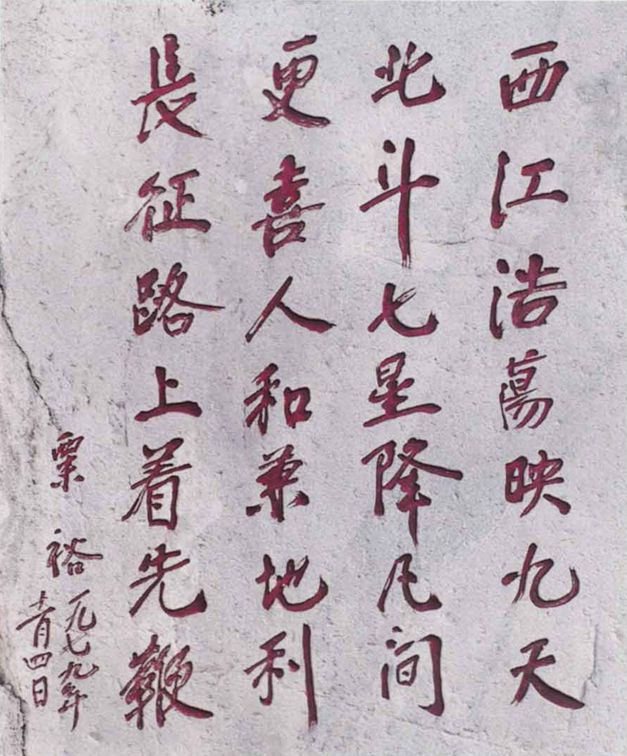 西江浩蕩映九天
北斗七星降凡间
更喜人和兼地利
長征路上着先鞭
粟裕
一九七九年
十一月四日